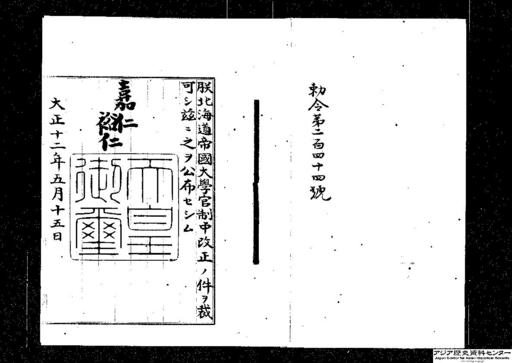 勅令第二百四十四號
朕北海道帝國大學官制中改正ノ件ヲ裁
可シ茲ニ之ヲ公布セシム
嘉仁
裕仁
天皇
御璽
大正十二年五月十五日
アジア歴史資料センター
Japan Center for Asian Historical Records